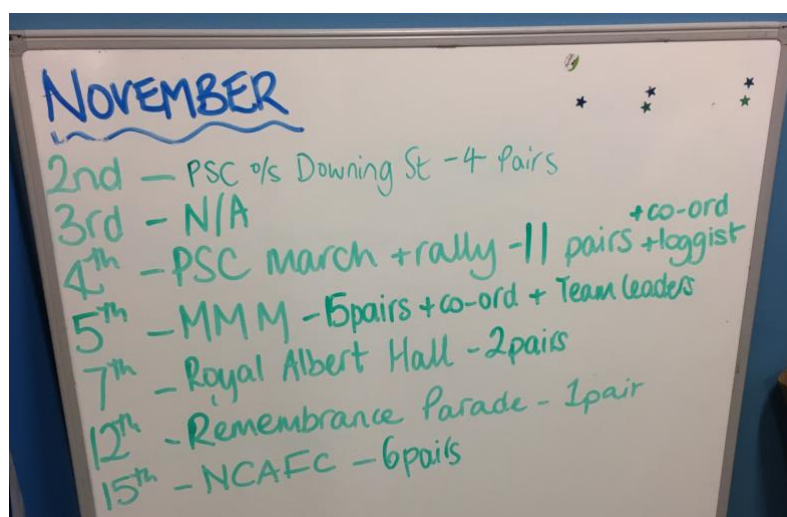 NOVEMBER
2nd – PSC o/s Downing St - 4 Pairs
3rd – N/A
4th – PSC march + rally - 11 pairs +co-ord +loggist
5th – MMM – 15pairs + co-ord + Team leaders
7th – Royal Albert Hall - 2pairs
12th - Remembrance Parade - 1pair
15th – NCAFC – 6pairs